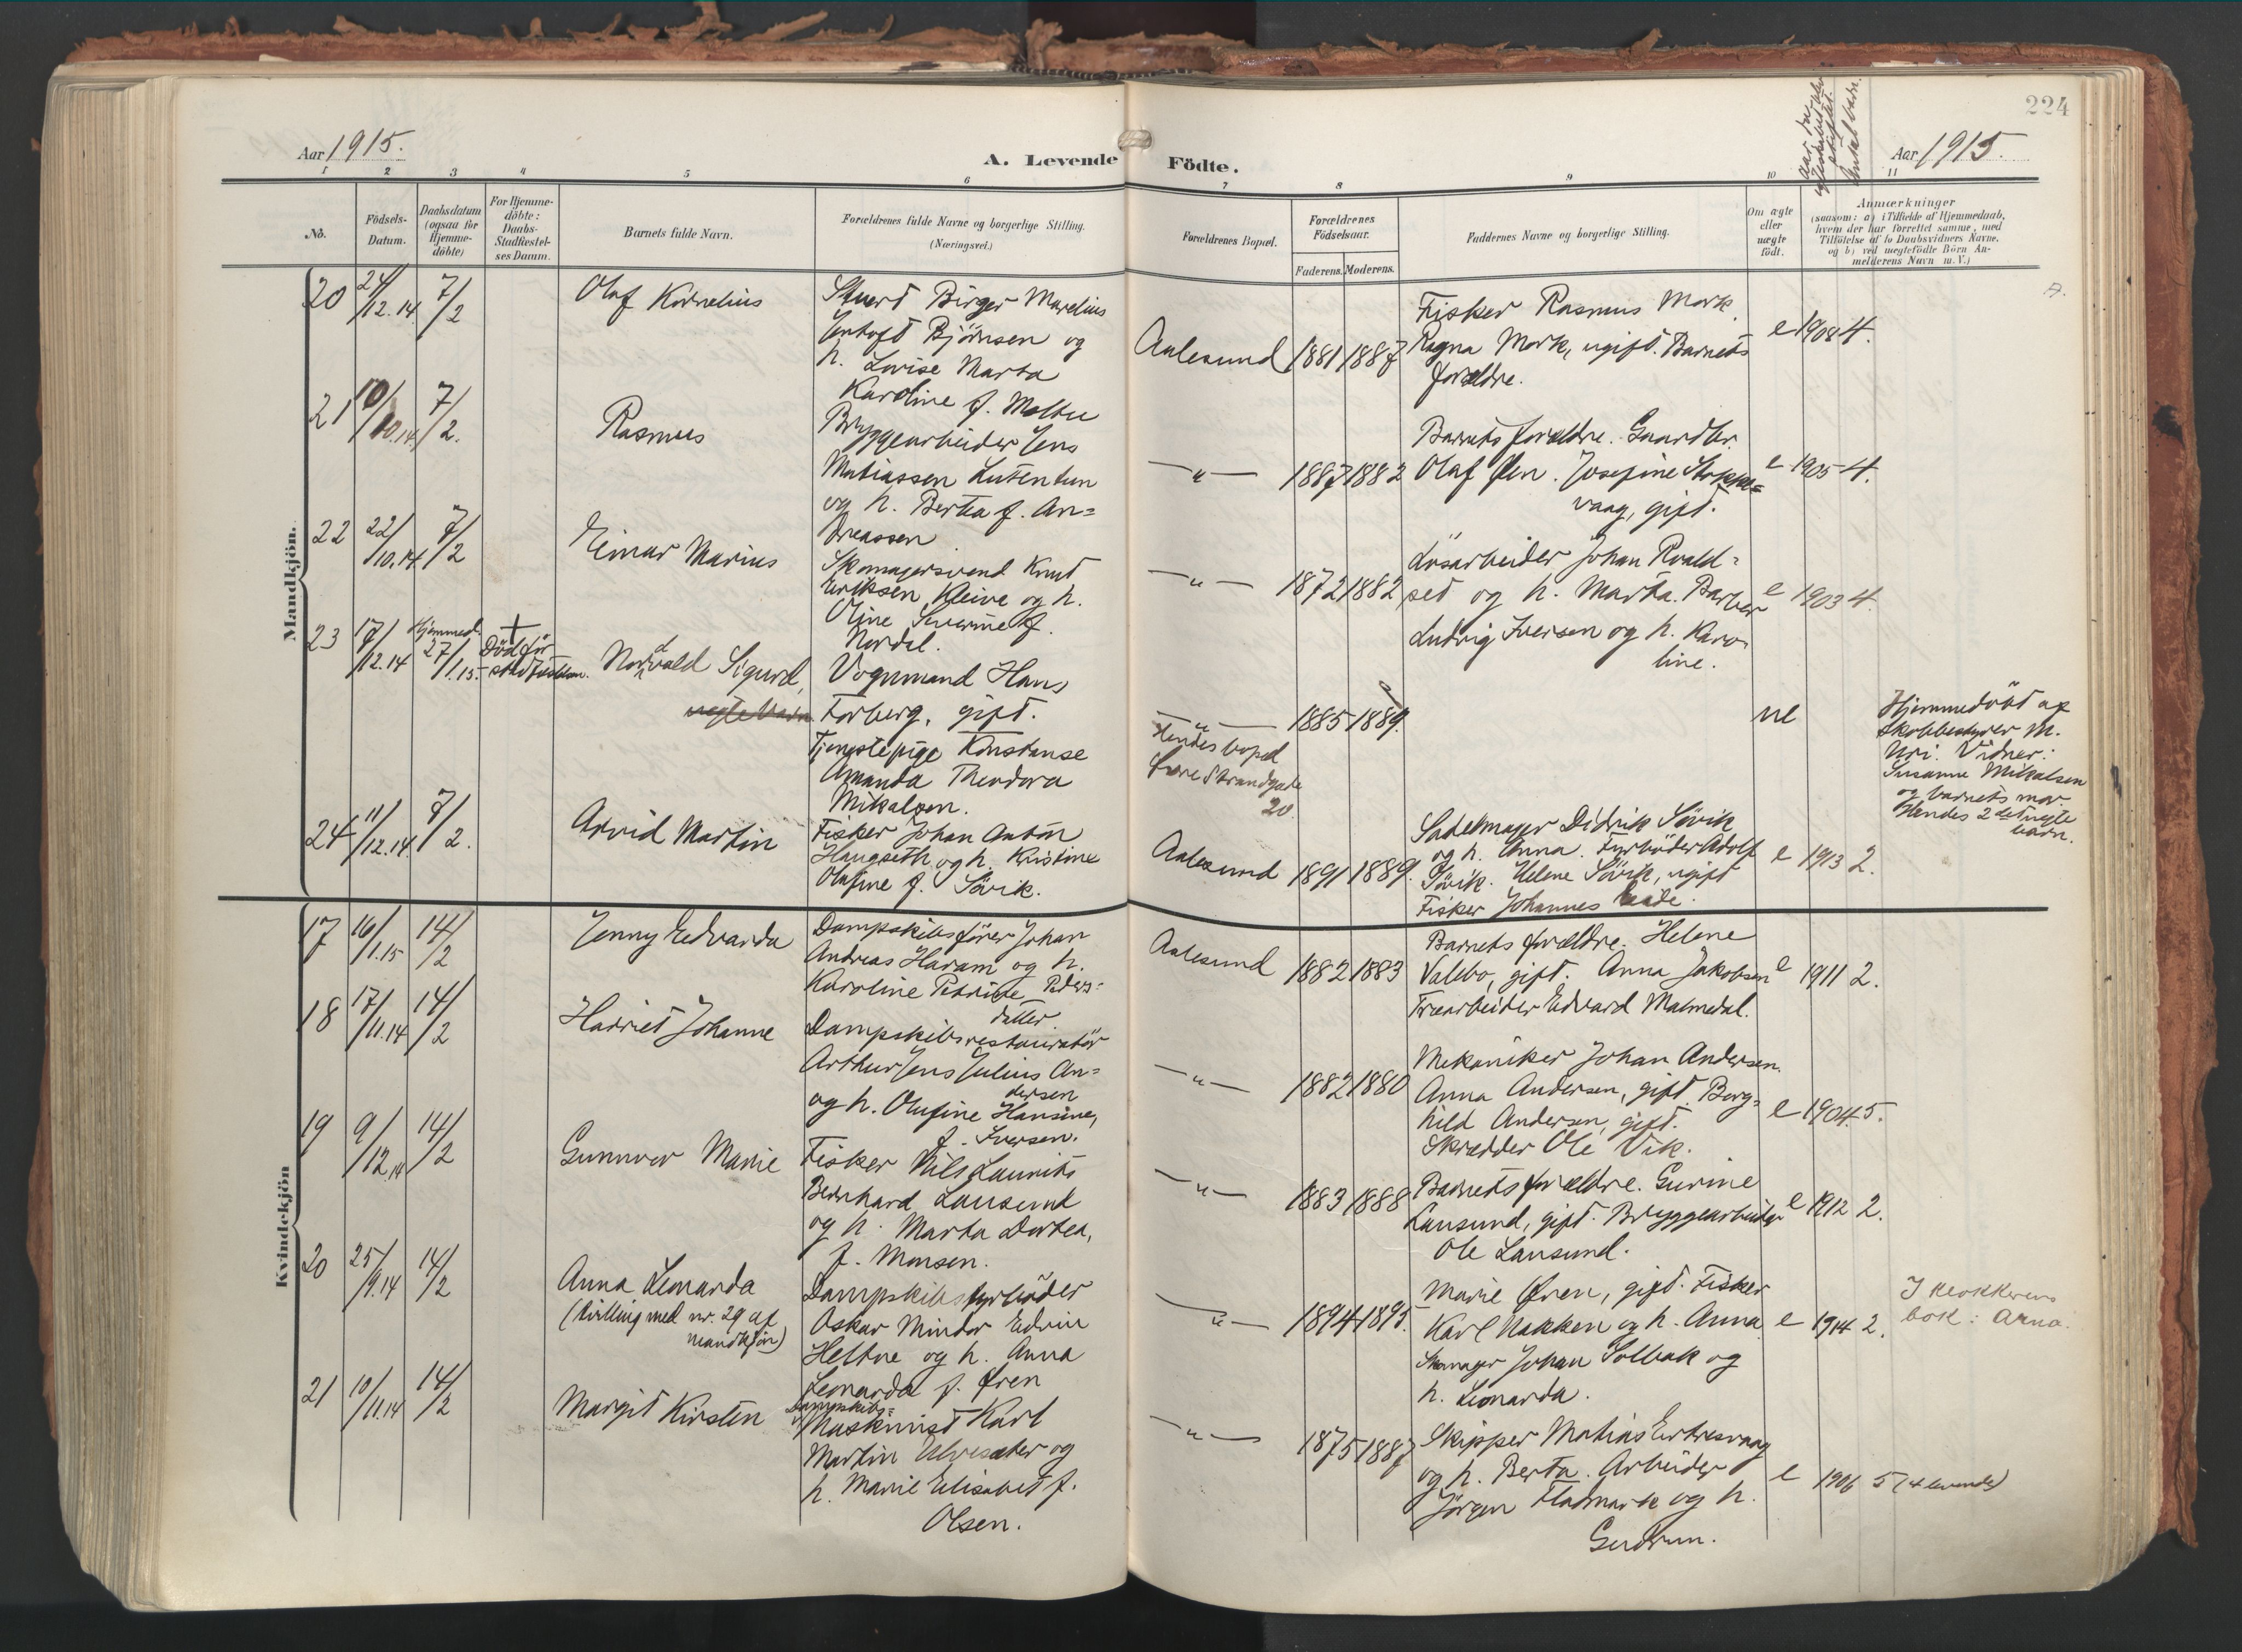 224
Aar 1915.
A. Levende Födte.
Aar 1915.
Antal barn.
1 2 3 4 5 6 7 8 9 10 11
No.
Födsels-
Datum.
Daabsdatum
(ogsaa for
Hjemme-
döbte)
For Hjemme-
döbte:
Daabs-
Stadfæstel-
ses Datum.
Barnets fulde Navn.
Forældrenes fulde Navne og borgerlige Stilling.
(Næringsvei.)
Forældrenes Bopæl.
Forældrenes
Födselsaar.
Faderens. Moderens.
Faddernes Navne og borgerlige Stilling.
Om ægte
eller
uægte
født.
Anmærkninger
(saasom: a) i Tilfælde af Hjemmedaab,
hvem der har forrettet samme, med
Tilföielse af to Daabsvidners Navne,
og b) ved uegtefödte Börn An-
melderens Navn m.V.)
Mandkjön.
20 24/12.14 7/2
Olaf Kornelius
Stuert Birger Marelius
Jentoft Björnsen og
h. Lovise Marta
Karoline f. Moltu
Aalesund 1881 1887
Fisker Rasmus Mork,
Ragna Mork, ugift. Barnets
forældre.
e 1908 4.
21 10/10.14 7/2.
Rasmus
Bryggearbeider Jens
Matiassen Lutentun
og h. Berta f. An=
dreassen
—"— 1887 1882
Barnets forældre. Gaardbr.
Olaf Øen. Josefine Stokke=
vaag, gift.
e 1905 4.
22 22/10.14 7/2
Einar Marius
Skomagersvend Knut
Eriksen Kleive og h.
Oline Severine f.
Nordal.
—"— 1872 1882
Lösarbeider Johan Roald=
set og h. Marta. Barber
Ludvig Iversen og h. Karo-
line.
e 1903 4.
23 17/12.14 Hjemmed. 27/1.15. + Död för stadfestelsen.
Nordvald Sigurd,
uegte barn
Vognmand Hans
Forberg, gift.
Tjenestepige Konstanse
Amanda Theodora
Mikalsen.
—"— 1885 1889.
Hendes bopel
Övre Strandgade
20.
ue
Hjemmedöbt af
skolebestyrer M.
Uri. Vidner:
Susanne Mikalsen
og barnets mor.
Hendes 2det uegte
barn.
24 11/12.14 7/2.
Arvid Martin
Fisker Johan Anton
Haugseth og h. Kristine
Olufine f. Sövik.
Aalesund 1891 1889.
Sadelmager Didrik Sövik
og h. Anna. Fyrböder Adolf
Sövik. Helene Sövik, ugift
Fisker Johannes
e 1913 2.
Kvindekjön
17 16/1.15 14/2
Jenny Edvarda
Dampskibsförer Johan
Andreas Haram og h.
Karoline Petrine Peders=
datter.
Aalesund 1882 1883
Barnets forældre. Helene
Valbo, gift. Anna Jakobsen
Træarbeider Edvard Malmedal.
e 1911 2.
18 17/11.14 14/2
Harriet Johanne
Dampskibsrestauratör
Arthur Jens Julius An=
dersen
og h. Olufine Hansine,
f. Iversen.
—"— 1882 1880
Mekaniker Johan Andersen.
Anna Andersen, gift. Borg=
hild Andersen, gift.
Skrædder Ole Vik.
e 1904 5.
19 9/12.14 14/2
Gunnvor Marie
Fisker Nils Laurits
Bernhard Lausund
og h. Marta Dortea,
f. Monsen.
—"— 1883 1888
Barnets forældre. Gurine
Lausund, gift. Bryggearbeider
Ole Lausund.
e 1912 2.
20 25/9.14 14/2
Anna Leonarda
(tvilling med nr. 29 af
mandkjön)
Dampskibsfyrböder
Oskar Mindor Edvin
Heltne og h. Anna
Leonarda f. Øren
—"— 1894 1895.
Marie Øren, gift. Fisker
Karl Nakken og h. Anna
Skomager Johan Solbak og
h. Leonarda.
e 1914 2.
I klokkerens
bok: Arna.
21 10/11.14 14/2
Margit Kirsten
Dampskibs=
Maskinist Karl
Martin Ulvesæter og
h. Marie Elisabet f.
Olsen.
—"— 1875 1887
Skipper Matias Ertresvaag
og h. Berta. Arbeider
Jörgen Fladmark og h.
Gudrun.
e 1906 5 (4 levende)